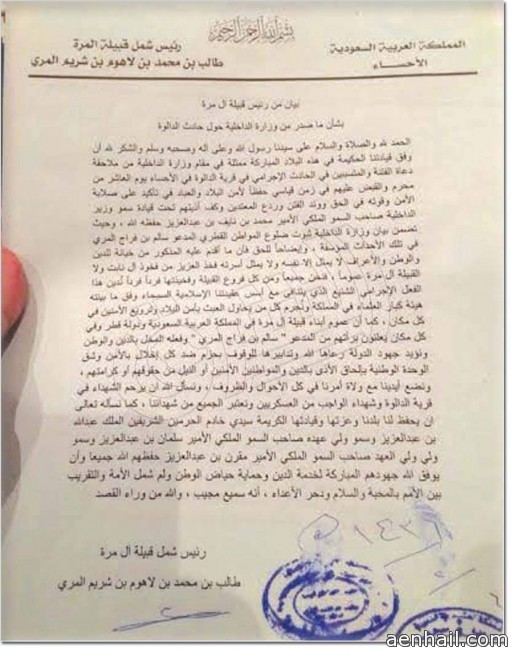 بسم الله الرحمن الرحيم
المملكة العربية السعودية
الأحساء
رئيس شمل قبيلة المرة
طالب بن محمد بن لاهوم بن شريم المري
بيان من رئيس قبيلة ال مرة
بشأن ما صدر من وزارة الداخلية حول حادث الدالوة
الحمد لله والصلاة والسلام على سيدنا رسول الله وعلى أله وصحبه وسلم والشكر لله أن
وفق قيادتنا الحكيمة في هذه البلاد المباركة ممثلة في مقام وزارة الداخلية من ملاحقة
دعاة الفتنة والمتسببين في الحادث الإجرامي في قرية الدالوة في الأحساء يوم العاشر من
محرم والقبض عليهم في زمن قياسي حفظاً لأمن البلاد والعباد في تأكيد على صلابة
الأمن وقوته في الحق ووئد الفتن وردع المعتدين وكف أذيتهم تحت قيادة سمو وزير
الداخلية صاحب السمو الملكي الأمير محمد بن نايف بن عبدالعزيز حفظه الله ، وحيث
تضمن بيان وزارة الداخلية ثبوت ضلوع المواطن القطري المدعو سالم بن فراج المري
في تلك الأحداث المؤسفة ، وإيضاحاً للحق فأن ما أقدم عليه المذكور من خيانة للدين
والوطن والأعراف لا يمثل إلا نفسه ولا يمثل أسرته فخذ العزيز من فخوذ ال نابت ولا
القبيلة ال مرة عموماً ، فنحن جميعاً ومن كل فروع القبيلة وفخيذتها فرداً فرداً لدين هذا
الفعل الإجرامي الشنيع الذي يتنافى مع أبسط عقيدتنا الإسلامية السمحاء وفق ما بينته
هيئة كبار العلماء في المملكة وتجرم كل من يحاول العبث بأمن البلاد وترويع الآمنين في
كل مكان ، كما أن عموم أبناء قبيلة ال مرة في المملكة العربية السعودية ودولة قطر وفي
كل مكان يعلنون برأتهم من المدعو " سالم بن فراج المري " وفعله المخل بالدين والوطن
ونؤيد جهود الدولة رعاها الله وتدابيرها للوقوف بحزم ضد كل إخلال بالأمن وشق
الوحدة الوطنية بإلحاق الأذى بالدين والمواطنين الآمنين أو النيل من حقوقهم أو كرامتهم ,
ونضع أيدينا مع ولاة أمرنا في كل الأحوال والظروف ، ونسأل الله ان يرحم الشهداء في
قرية الدالوة وشهداء الواجب من العسكريين ونعتبر الجميع من شهدائنا ، كما نسأله تعالى
إن يحفظ لنا بلدنا وعزتها وقيادتها الكريمة سيدي خادم الحرمين الشريفين الملك عبدالله
بن عبدالعزيز وسمو ولي عهده صاحب السمو الملكي الأمير سلمان بن عبدالعزيز وسمو
ولي ولي العهد صاحب السمو الملكي الأمير مقرن بن عبدالعزيز حفظهم الله جميعا وأن
يوفق الله جهودهم المباركة لخدمة الدين وحماية حياض الوطن ولم شمل الأمة والتقريب
بين الأمم بالمحبة والسلام ودحر الأعداء ، أنه سميع مجيب ، والله من وراء القصد
رئيس شمل قبيلة ال مرة
طالب بن محمد بن لاهوم بن شريم المري
aenhail.com